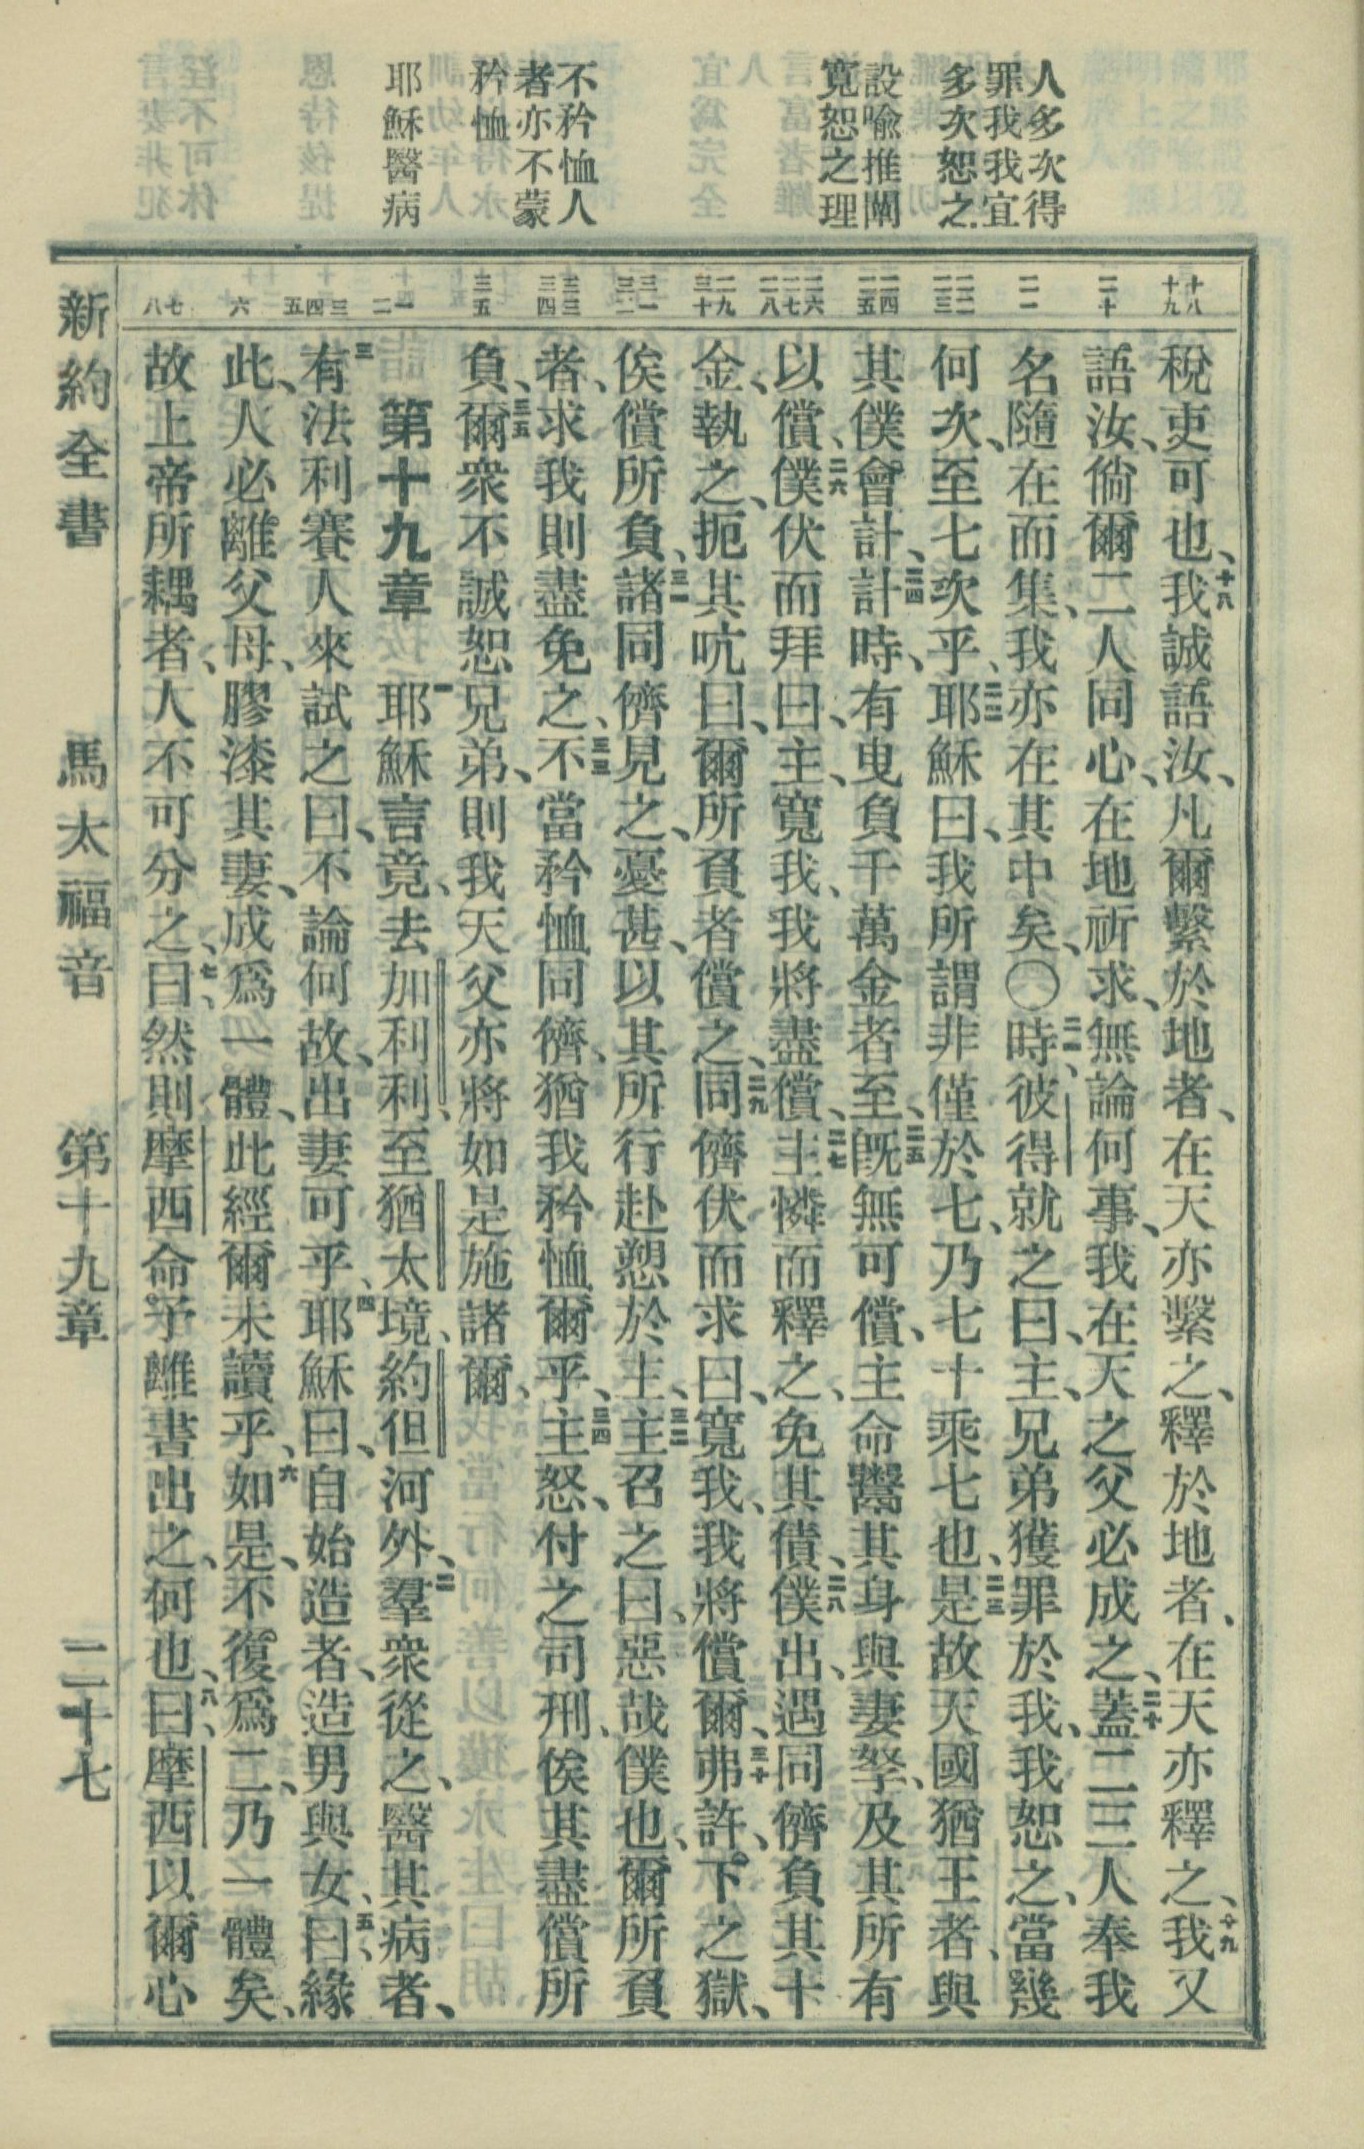 人多次得
罪我我宜
多次恕之
設喻推闡
寬恕之理
不矜恤人
者亦不蒙
矜恤
耶穌醫病
十八
十九
二十
二一
二二
二三
二四
二五
二六
二七
二八
二九
三十
三一
三二
三三
三四
三五
一
二
三
四
五
六
七
八
稅吏可也、十八我誠語汝、凡爾繫於地者、在天亦繫之、釋於地者、在天亦釋之、十九我又
語汝、倘爾二人同心、在地祈求、無論何事、我在天之父必成之、二十蓋二三人奉我
名隨在而集、我亦在其中矣、〇二一時彼得就之曰、主、兄弟獲罪於我、我恕之、當幾
何次、至七次乎、二二耶穌曰、我所謂非僅於七、乃七十乘七也、二三是故天國猶王者、與
其僕會計、二四計時、有曳負千萬金者至、二五旣無可償、主命鬻其身與妻孥、及其所有
以償、二六僕伏而拜曰、主、寬我、我將盡償、二七主憐而釋之、免其債、二八僕出、遇同儕負其十
金、執之、扼其吭曰、爾所負者償之、二九同儕伏而求曰、寬我、我將償爾、三十弗許、下之獄、
俟償所負、三一諸同儕見之、憂甚、以其所行赴愬於主、三二主召之曰、惡哉僕也、爾所負
者、求我則盡免之、三三不當矜恤同儕、猶我矜恤爾乎、三四主怒、付之司刑、俟其盡償所
負、三五爾衆不誠恕兄弟、則我天父亦將如是施諸爾、
第十九章 一耶穌言竟、去加利利、至猶太境、約但河外、二羣衆從之、醫其病者、
三有法利賽人來試之曰、不論何故、出妻可乎、四耶穌曰、自始造者、造男與女、五曰、緣
此、人必離父母、膠漆其妻、成爲一體、此經爾未讀乎、六如是、不復爲二、乃一體矣、
故上帝所耦者、人不可分之、七曰、然則摩西命予離書出之、何也、八曰、摩西以爾心
新約全書 馬太福音 第十九章 二十七